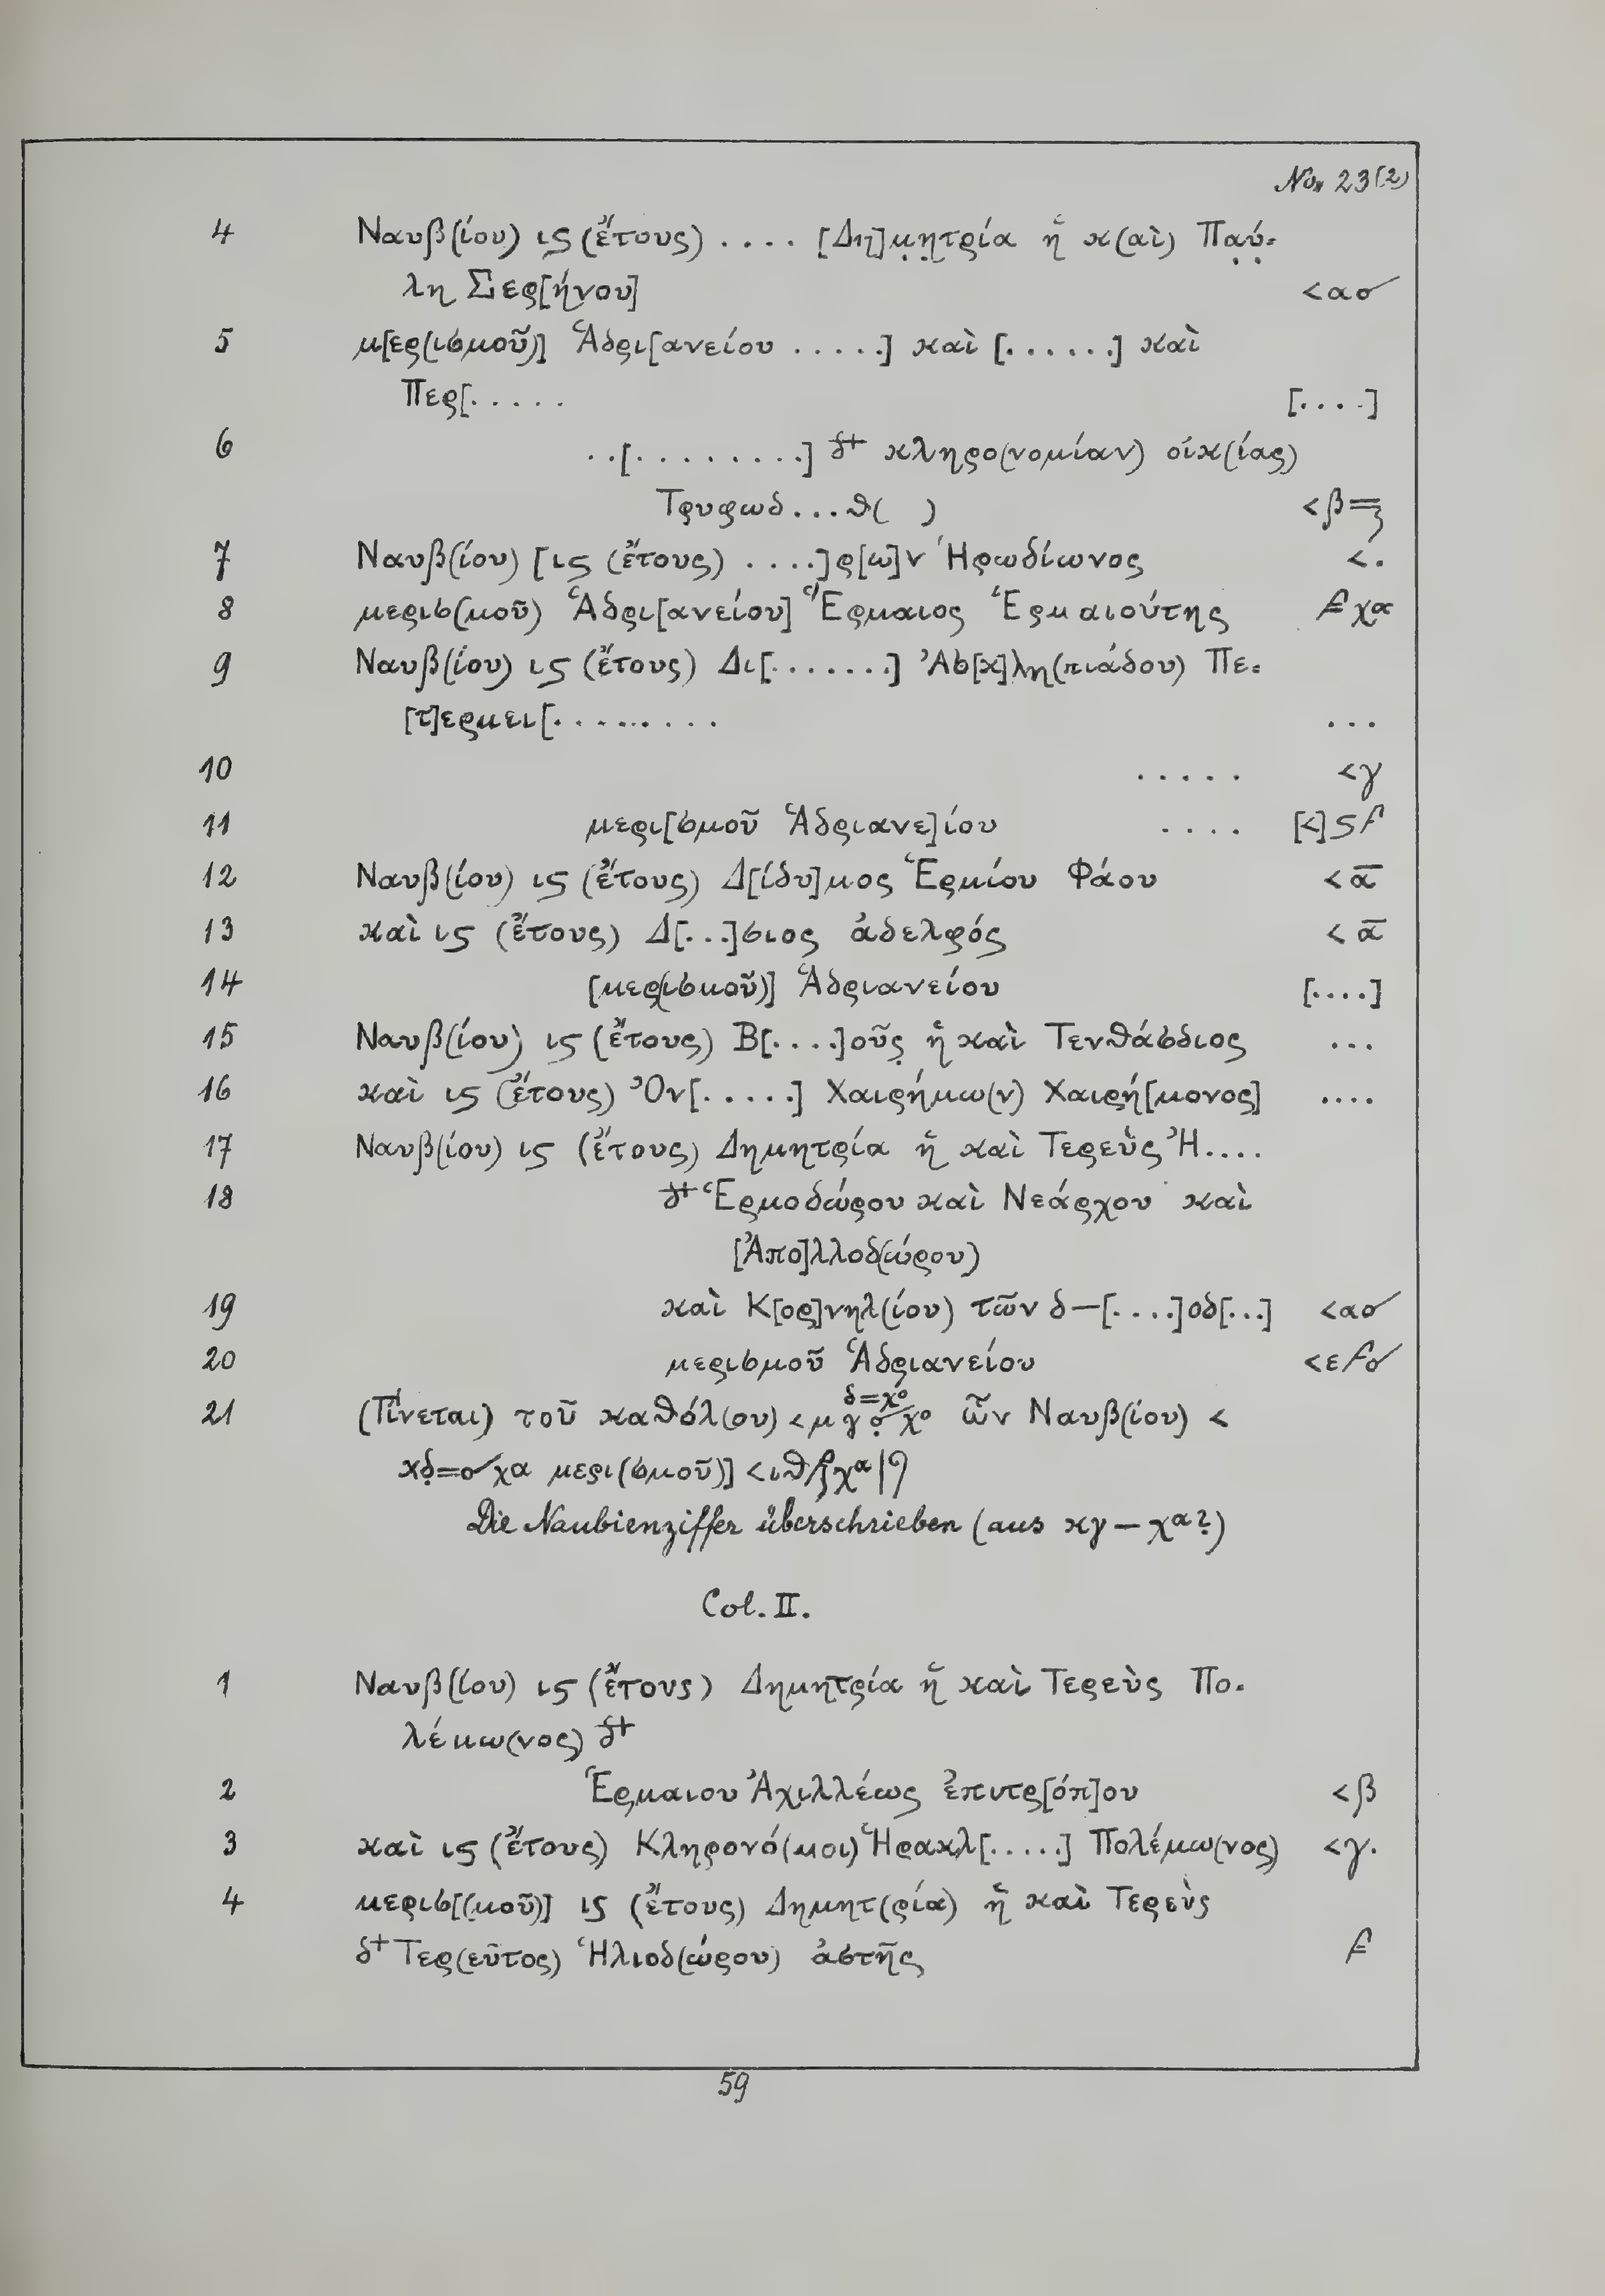 No. 23 (2)
4 Ναυβ(ίου) ιϛ (ἔτους) .... [Δη]μ̣η̣τρία ἡ κ(αὶ) Πα̣ύ̣-
λη Σερ[ήνου] <ασ
5 μ[ερ(ισμοῦ)] Ἁδρι[ανείου .....] καὶ [......] καὶ
Περ[..... [....]
6 ..[.........] δ+ κληρο(νομίαν) οἰκ(ίας)
Τρυφωδ...θ( ) <β=
7 Ναυβ(ίου) [ιϛ (ἔτους) ....]ρ[ω]ν Ἡρωδίωνος <.
8 μερισ(μοῦ) Ἁδρι[ανείου] Ἕρμαιος Ἑρμαιούτης χα
9 Ναυβ(ίου) ιϛ (ἔτους) Δι[.......] Ἀσ[κ]λη(πιάδου) Πε-
[τ]ερμει[......... ...
10 ..... <γ
11 μερι[σμοῦ Ἁδριανε]ίου .... [<]ϛ
12 Ναυβ(ίου) ιϛ (ἔτους) Δ[ίδυ]μος Ἑρμίου Φάου <ᾱ
13 καὶ ιϛ (ἔτους) Δ[...]σιος ἀδελφός <ᾱ
14 [μερ(ισμοῦ)] Ἁδριανείου [....]
15 Ναυβ(ίου) ιϛ (ἔτους) Β[....]οῦς̣ ἡ καὶ Τενθάσδιος ...
16 καὶ ιϛ (ἔτους) Ὀν[.....] Χαιρήμω(ν) Χαιρή[μονος] ....
17 Ναυβ(ίου) ιϛ (ἔτους) Δημητρία ἡ καὶ Τερεὺς Ἠ....
18 δ+ Ἑρμοδώρου καὶ Νεάρχου καὶ
[Ἀπο]λλοδ(ώρου)
19 καὶ Κ[ορ]νηλ(ίου) τῶν δ–[....]οδ[...] <ασ
20 μερισμοῦ Ἁδριανείου <ε
δ=χο
21 (Γίνεται) τοῦ καθόλ(ου) <μγ σ̣χο ὧν Ναυβ(ίου) <
κδ̣=σχα μερι(σμοῦ)] <ιθ χα
Die Naubienziffer überschrieben (aus κγ – χα?)
Col. II.
1 Ναυβ(ίου) ιϛ (ἔτους) Δημητρία ἡ καὶ Τερεὺς Πο-
λέμω(νος) δ+
2 Ἑρμαιου Ἀχιλλέως ἐπιτρ[όπ]ου <β
3 καὶ ιϛ (ἔτους) Κληρονό(μοι) Ἡρακλ[.....] Πολέμω(νος) <γ.
4 μερισ[(μοῦ)] ιϛ (ἔτους) Δημητ(ρία) ἡ καὶ Τερεὺς
δ+ Τερ(εῦτος) Ἡλιοδ(ώρου) ἀστῆς
59